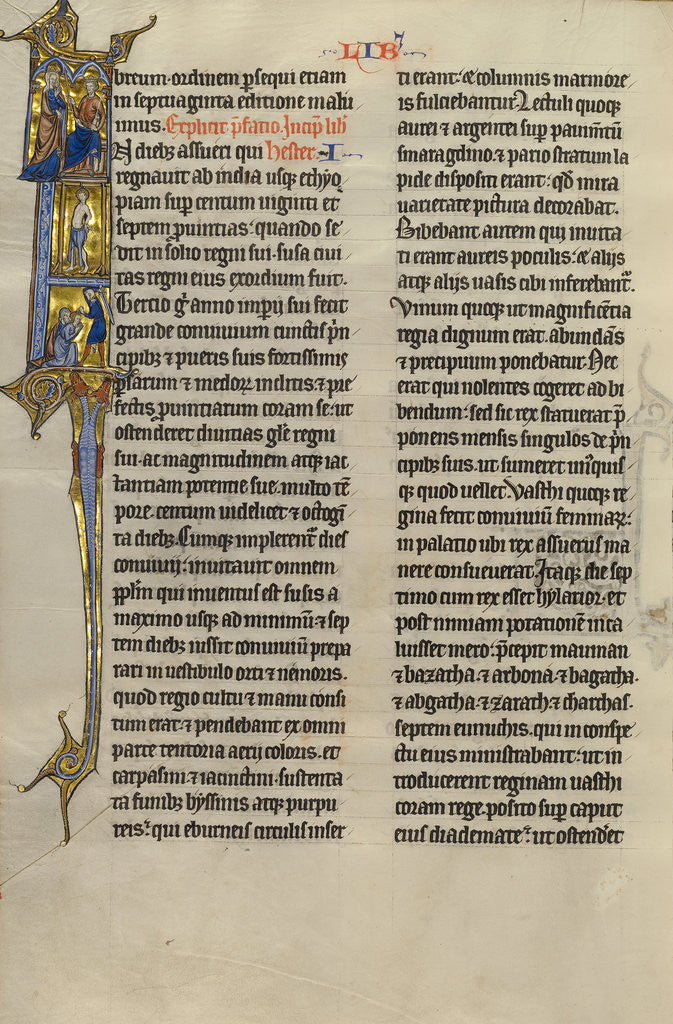 LIB
breum ordinem ꝑsequi etiam
in septuaginta editione malu
imus. Explicit p̄fatio. Incip̄ lib̄
N diebꝫ assueri qui Hester. I
regnauit ab india usqꝫ ethyo
piam sup̄ centum uiginti et
septem ꝓuintias: quando se
dit in solio regni sui. susa ciui
tas regni eius exordium fuit.
Tercio g̊ anno imp̄ij sui fecit
grande conuiuium cunctis p̄n
cipibꝫ ⁊ pueris suis fortissimis
ꝑsarum ⁊ medoꝝ inclitis ⁊ pre
fectis ꝓuintiarum coram se: ut
ostenderet diuitias gl̄e regni
sui. ac magnitudinem atqꝫ iac
tantiam potentie sue. multo tē
pore. centum uidelicet ⁊ octogī
ta diebꝫ. Cumqꝫ implerent᷑ dies
conuiuij: inuitauit omnem
pp̄lm qui inuentus est susis a
maximo usqꝫ ad minimū: ⁊ sep
tem diebꝫ iussit conuiuiū prepa
rari in uestibulo orti ⁊ nemoris.
quod regio cultu ⁊ manu consi
tum erat. ⁊ pendebant ex omni
parte tentoria aerij coloris. et
carpasini ⁊ iacinctini. sustenta
ta funibꝫ byssinis atqꝫ purpu
reis: qui eburneis circulis inser
ti erant: & columnis marmore
is fulciebantur. Lectuli quoqꝫ
aurei ⁊ argentei sup̄ pauimētū
smaragdino. ⁊ pario stratum la
pide dispositi erant: qd̄ mira
uarietate pictura decorabat.
Bibebant autem qui inuita
ti erant aureis poculis: & alijs
atqꝫ alijs uasis cibi inferebant᷑.
Vinum quoqꝫ ut magnificētia
regia dignum erat. abundās
⁊ precipuum ponebatur. Nec
erat qui nolentes cogeret ad bi
bendum: sed sic rex statuerat p̄
ponens mensis singulos de p̄n
cipibꝫ suis. ut sumeret un̄quis
qꝫ quod uellet. Vasthi quoqꝫ re
gina fecit conuiuiū feminaꝝ:
in palatio ubi rex assuerus ma
nere consueuerat. Itaqꝫ die sep
timo cum rex esset hylarior. et
post nimiam potationē inca
luisset mero: p̄cepit mauman
⁊ bazatha. ⁊ arbona. ⁊ bagatha.
⁊ abgatha. ⁊ zarath. ⁊ charchas.
septem eunuchis. qui in conspe
ctu eius ministrabant: ut in
troducerent reginam uasthi
coram rege. posito sup̄ caput
eius diademate: ut ostend̄et